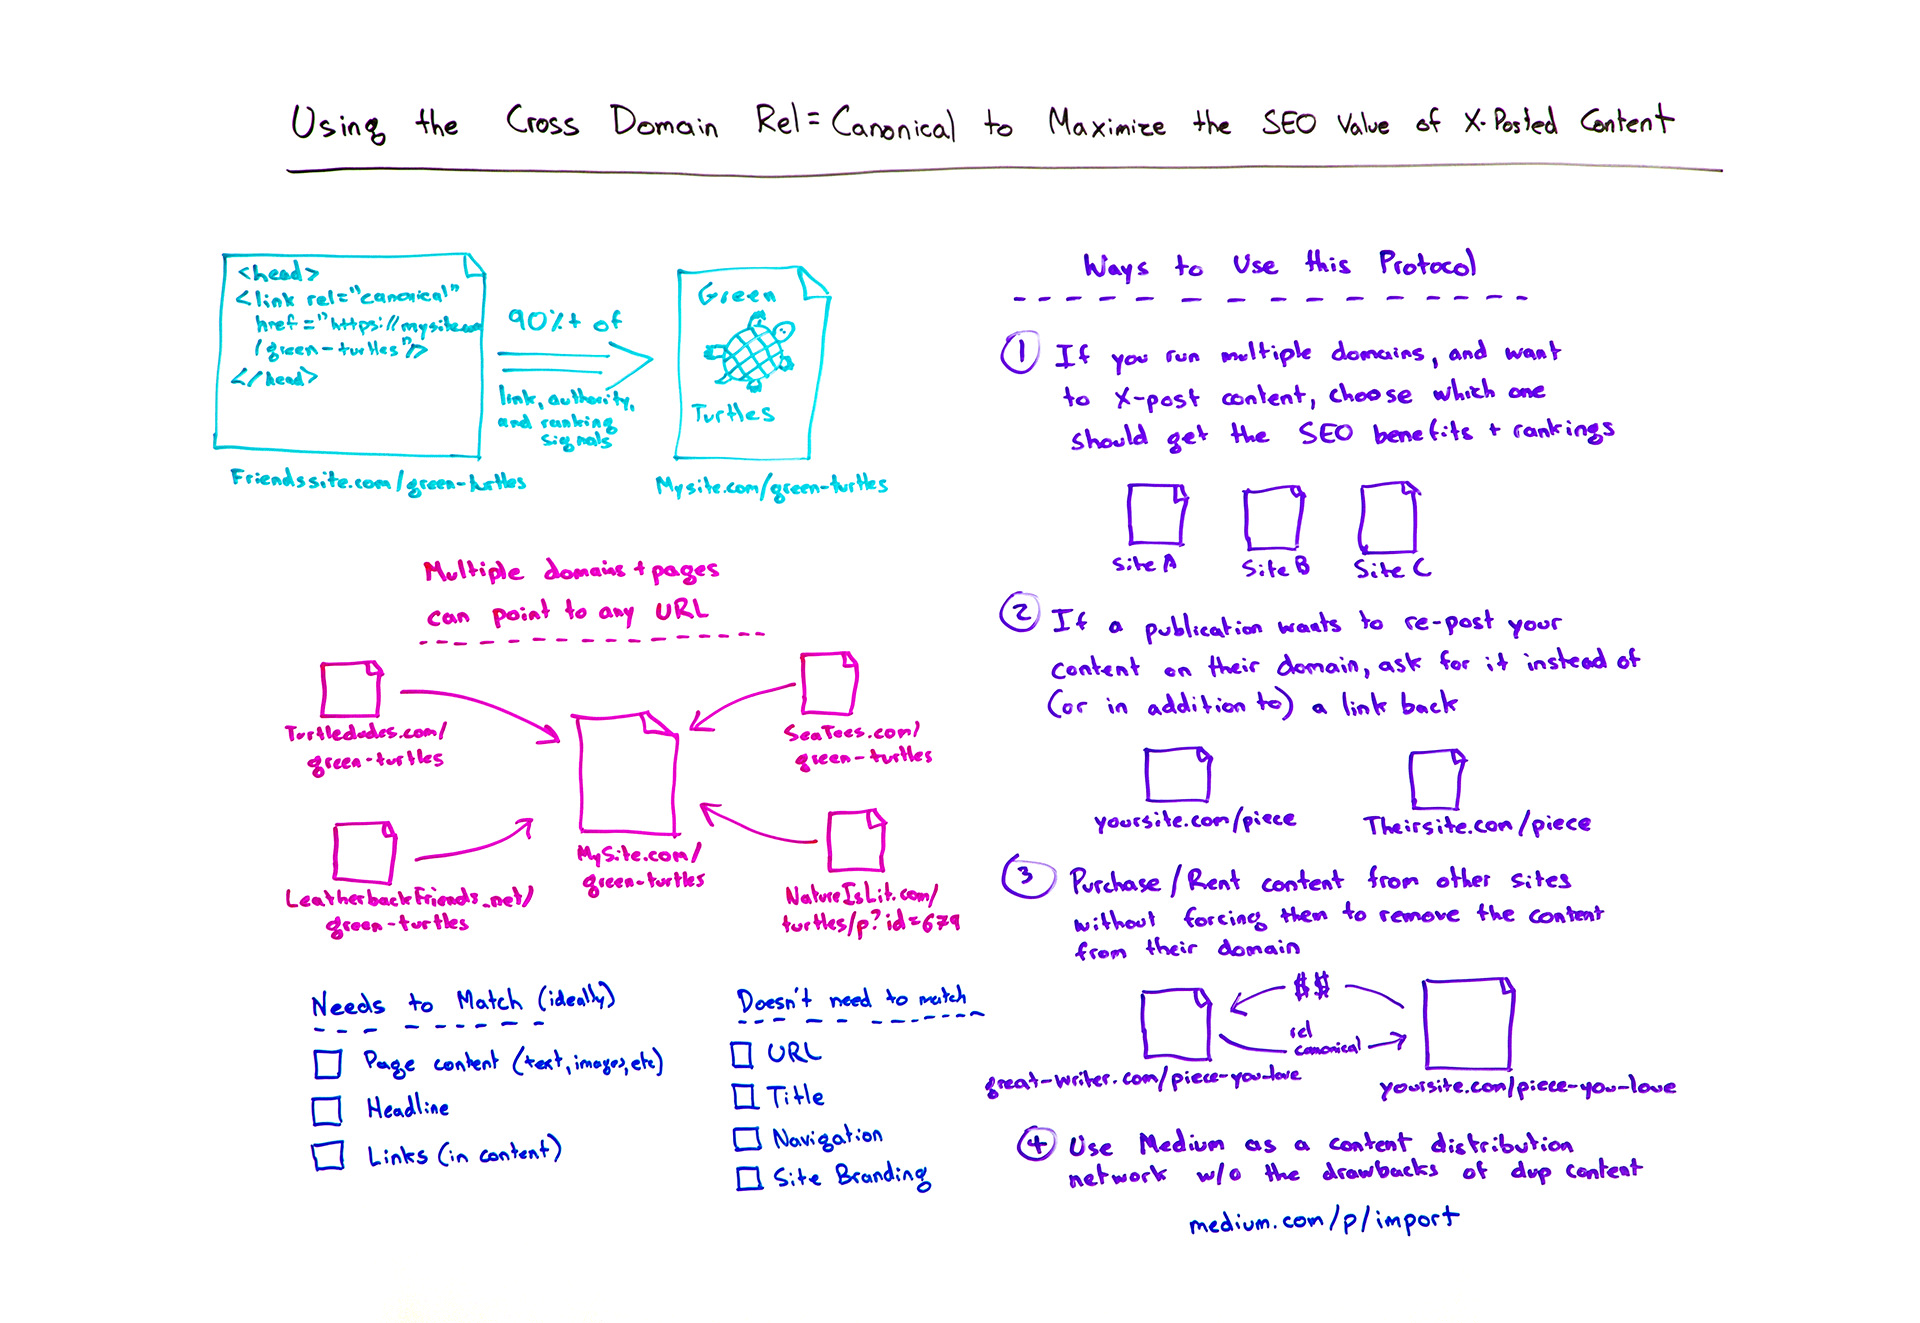 Using the Cross Domain Rel=Canonical to Maximize the SEO Value of X-Posted Content
<head>
<link rel="canonical"
href="https://mysite.com
/green-turtles"/>
</head>
Friendssite.com/green-turtles
90%+ of
link, authority,
and ranking
signals
Green
Turtles
Mysite.com/green-turtles
Multiple domains + pages
can point to any URL
Turtledudes.com/
green-turtles
SeaTees.com/
green-turtles
MySite.com/
green-turtles
LeatherbackFriends.net/
green-turtles
NatureIsLit.com/
turtles/p?id=679
Needs to Match (ideally)
Page content (text, images, etc)
Headline
Links (in content)
Doesn't need to match
URL
Title
Navigation
Site Branding
Ways to Use this Protocol
1 If you run multiple domains, and want
to X-post content, choose which one
should get the SEO benefits + rankings
Site A
Site B
Site C
2 If a publication wants to re-post your
content on their domain, ask for it instead of
(or in addition to) a link back
yoursite.com/piece
Theirsite.com/piece
3 Purchase/Rent content from other sites
without forcing them to remove the content
from their domain
$$
rel
canonical
great-writer.com/piece-you-love
yoursite.com/piece-you-love
4 Use Medium as a content distribution
network w/o the drawbacks of dup content
medium.com/p/import